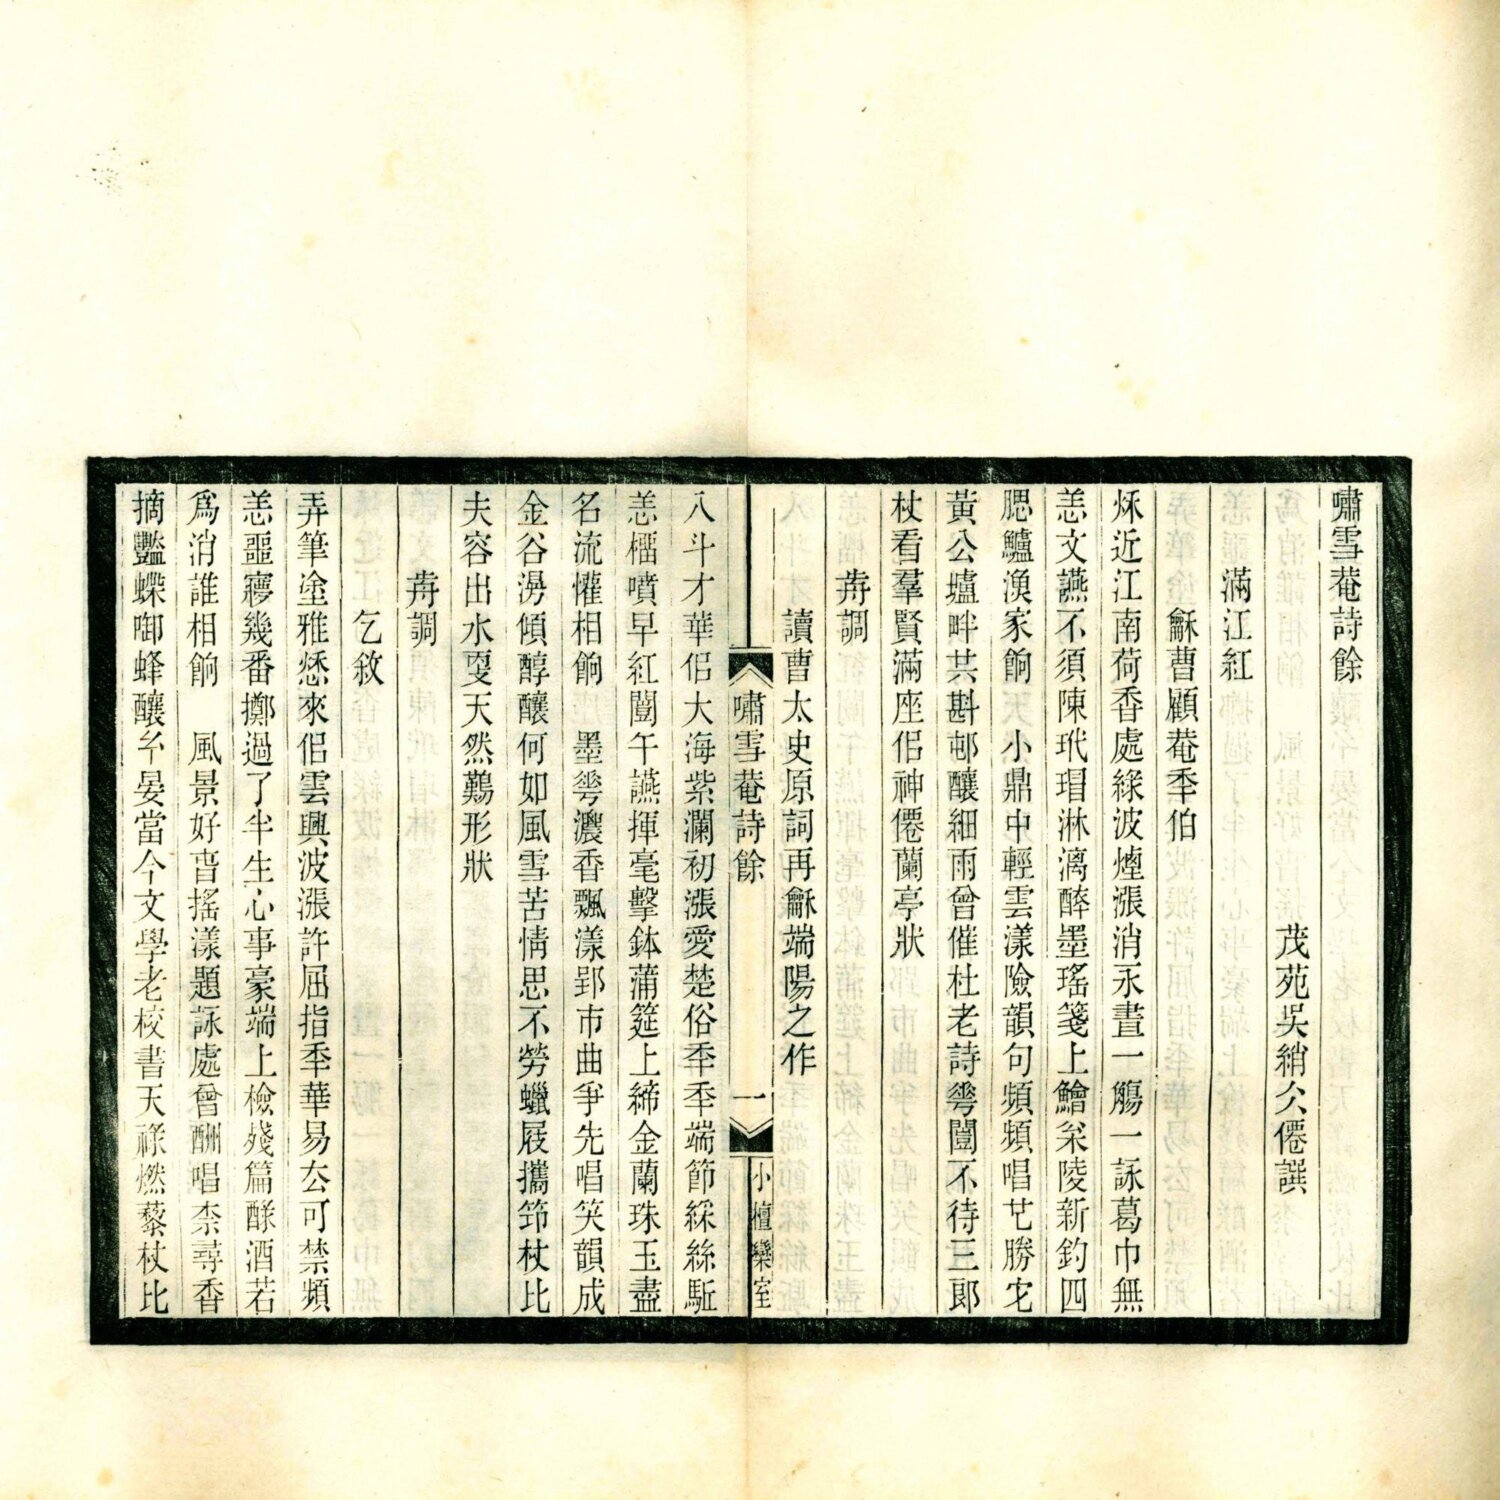 嘯雪菴詩餘
茂苑吳綃仌僊譔
滿江紅
龢曹顧菴季伯
秌近江南荷香處綠波煙漲消永晝一觴一詠葛巾無
恙文讌不須陳玳瑁淋漓醉墨瑤箋上鱠籴陵新釣四
腮鱸漁家餉　小鼎中輕雲漾險韻句頻頻唱芼勝它
黃公壚畔共斟邨釀細雨曾催杜老詩蕚闓不待三郞
杖看羣賢滿座侣神僊蘭亭狀
歬調
讀曹太史原詞再龢端陽之作
嘯雪菴詩餘
一
小檀欒室
八斗才華侣大海紫瀾初漲愛楚俗秊秊端節綵絲駈
恙榴噴早紅闓午讌揮毫擊鉢蒲筵上締金蘭珠玉盡
名流懽相餉　墨蕚濃香飄漾郢市曲爭先唱笑韻成
金谷湯傾醇釀何如風雪苦情思不勞蠟屐攜笻杖比
夫容出水戛天然鷬形狀
歬調
乞敘
弄筆塗雅㥛來侣雲興波漲許屈指秊華易厺可禁頻
恙噩㝱幾番擲過了半生心事豪端上檢殘篇酴酒若
爲消誰相餉　風景好旾搖漾題詠處曾酬唱柰尋香
摘豔蝶啣蜂釀仐晏當今文學老校書天祿燃藜杖比